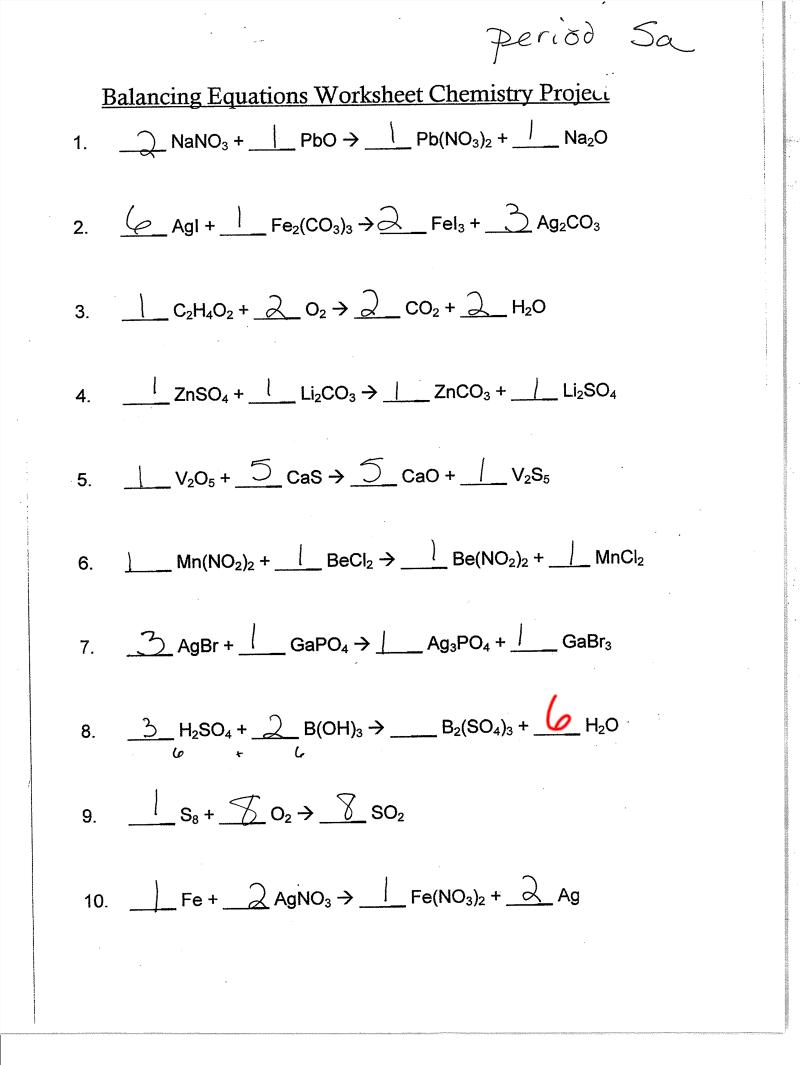 period 5a
Balancing Equations Worksheet Chemistry Project
1. 2 NaNO₃ + 1 PbO → 1 Pb(NO₃)₂ + 1 Na₂O
2. 6 AgI + 1 Fe₂(CO₃)₃ → 2 FeI₃ + 3 Ag₂CO₃
3. 1 C₂H₄O₂ + 2 O₂ → 2 CO₂ + 2 H₂O
4. 1 ZnSO₄ + 1 Li₂CO₃ → 1 ZnCO₃ + 1 Li₂SO₄
5. 1 V₂O₅ + 5 CaS → 5 CaO + 1 V₂S₅
6. 1 Mn(NO₂)₂ + 1 BeCl₂ → 1 Be(NO₂)₂ + 1 MnCl₂
7. 3 AgBr + 1 GaPO₄ → 1 Ag₃PO₄ + 1 GaBr₃
8. 3 H₂SO₄ + 2 B(OH)₃ → ____ B₂(SO₄)₃ + 6 H₂O
6 + 6
9. 1 S₈ + 8 O₂ → 8 SO₂
10. 1 Fe + 2 AgNO₃ → 1 Fe(NO₃)₂ + 2 Ag